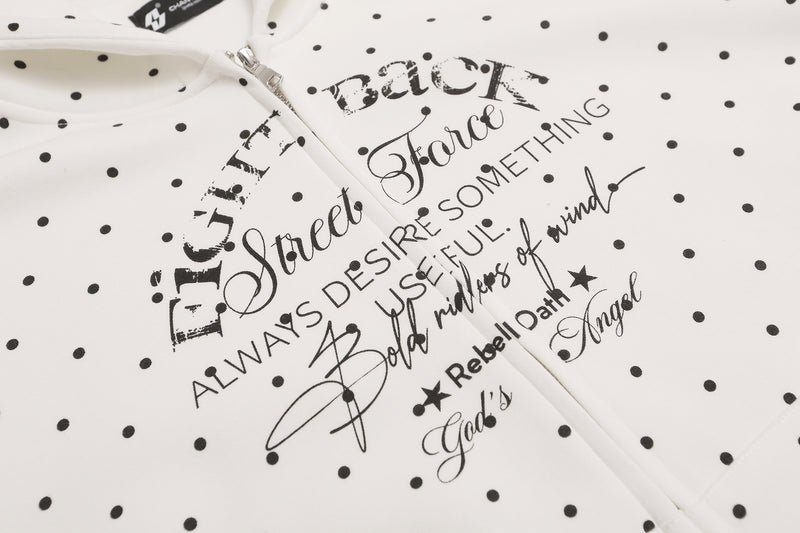 FIGHT BACK
Street Force
ALWAYS DESIRE SOMETHING
USEFUL.
Bold riders of wind
★ Rebell Oath ★
God's Angel